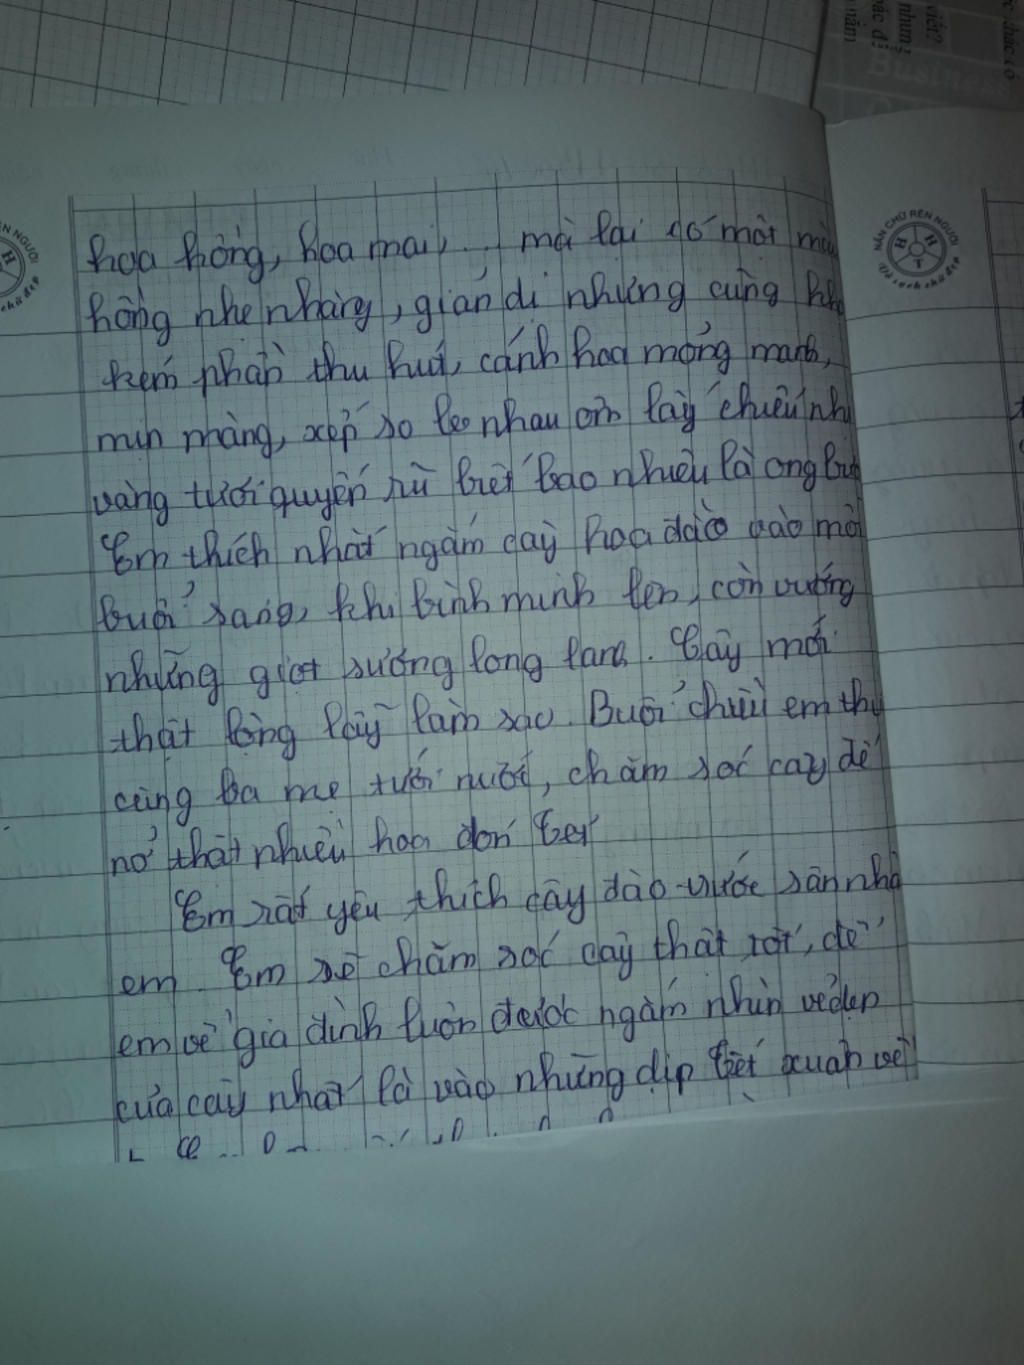 hoa hồng, hoa mai,... mà lại có một màu
hồng nhẹ nhàng, giản dị nhưng cũng
kém phần thu hút, cánh hoa mỏng manh,
mịn màng, xếp so le nhau ôm lấy
vàng tươi quyến rũ biết bao nhiêu là ong
Em thích nhất ngắm cây hoa đào vào
buổi sáng, khi bình minh lên, còn vướng
những giọt sương long lanh. Cây mới
thật lộng lẫy làm sao. Buổi chiều em
cùng ba mẹ tưới nước, chăm sóc cây để
nở thật nhiều hoa đón tết
Em rất yêu thích cây đào trước sân nhà
em. Em sẽ chăm sóc cây thật tốt, để
em về gia đình luôn được ngắm nhìn vẻ đẹp
của cây nhất là vào những dịp tết xuân về
NẮN CHỮ RÈN NGƯỜI
H H T
Vở sạch chữ đẹp
Business